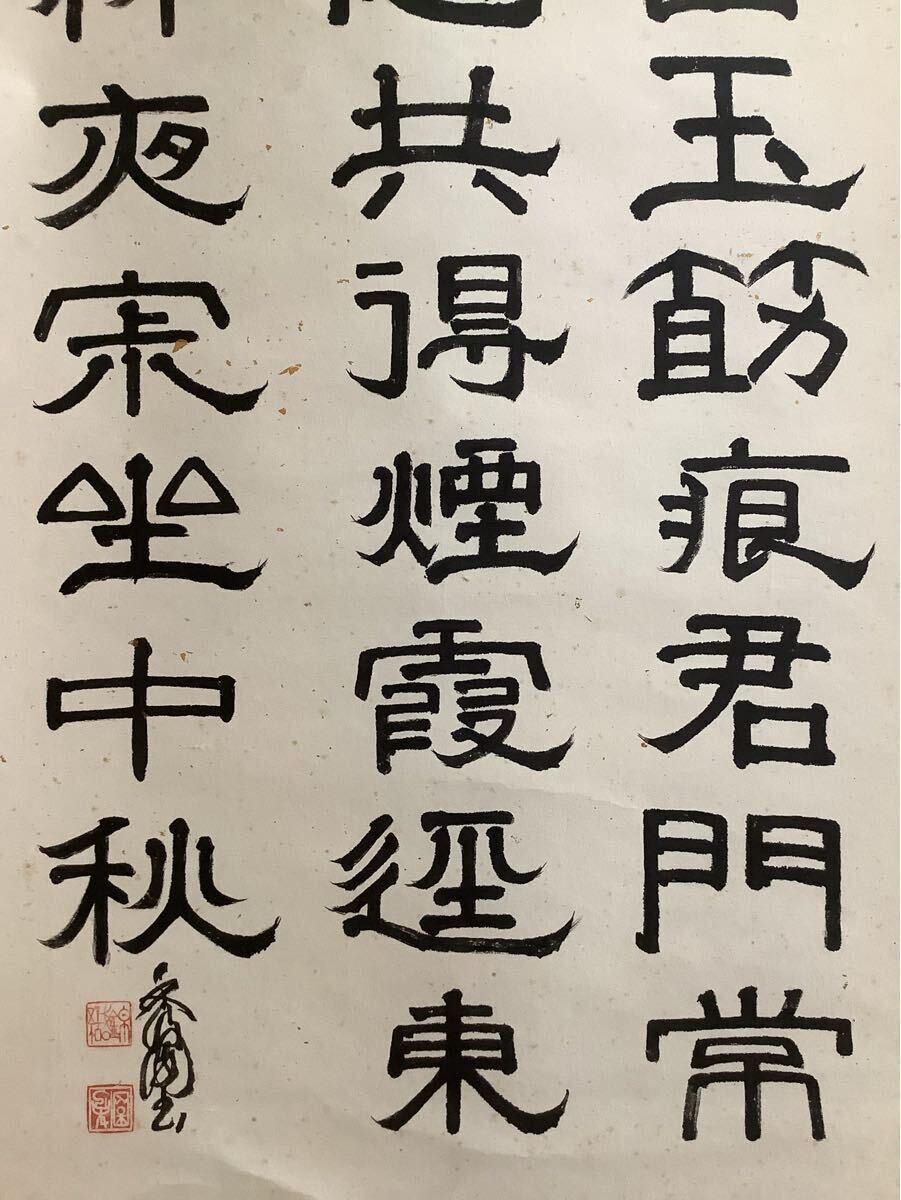 玉筯痕君門常
共得煙霞逕東
夜宋坐中秋